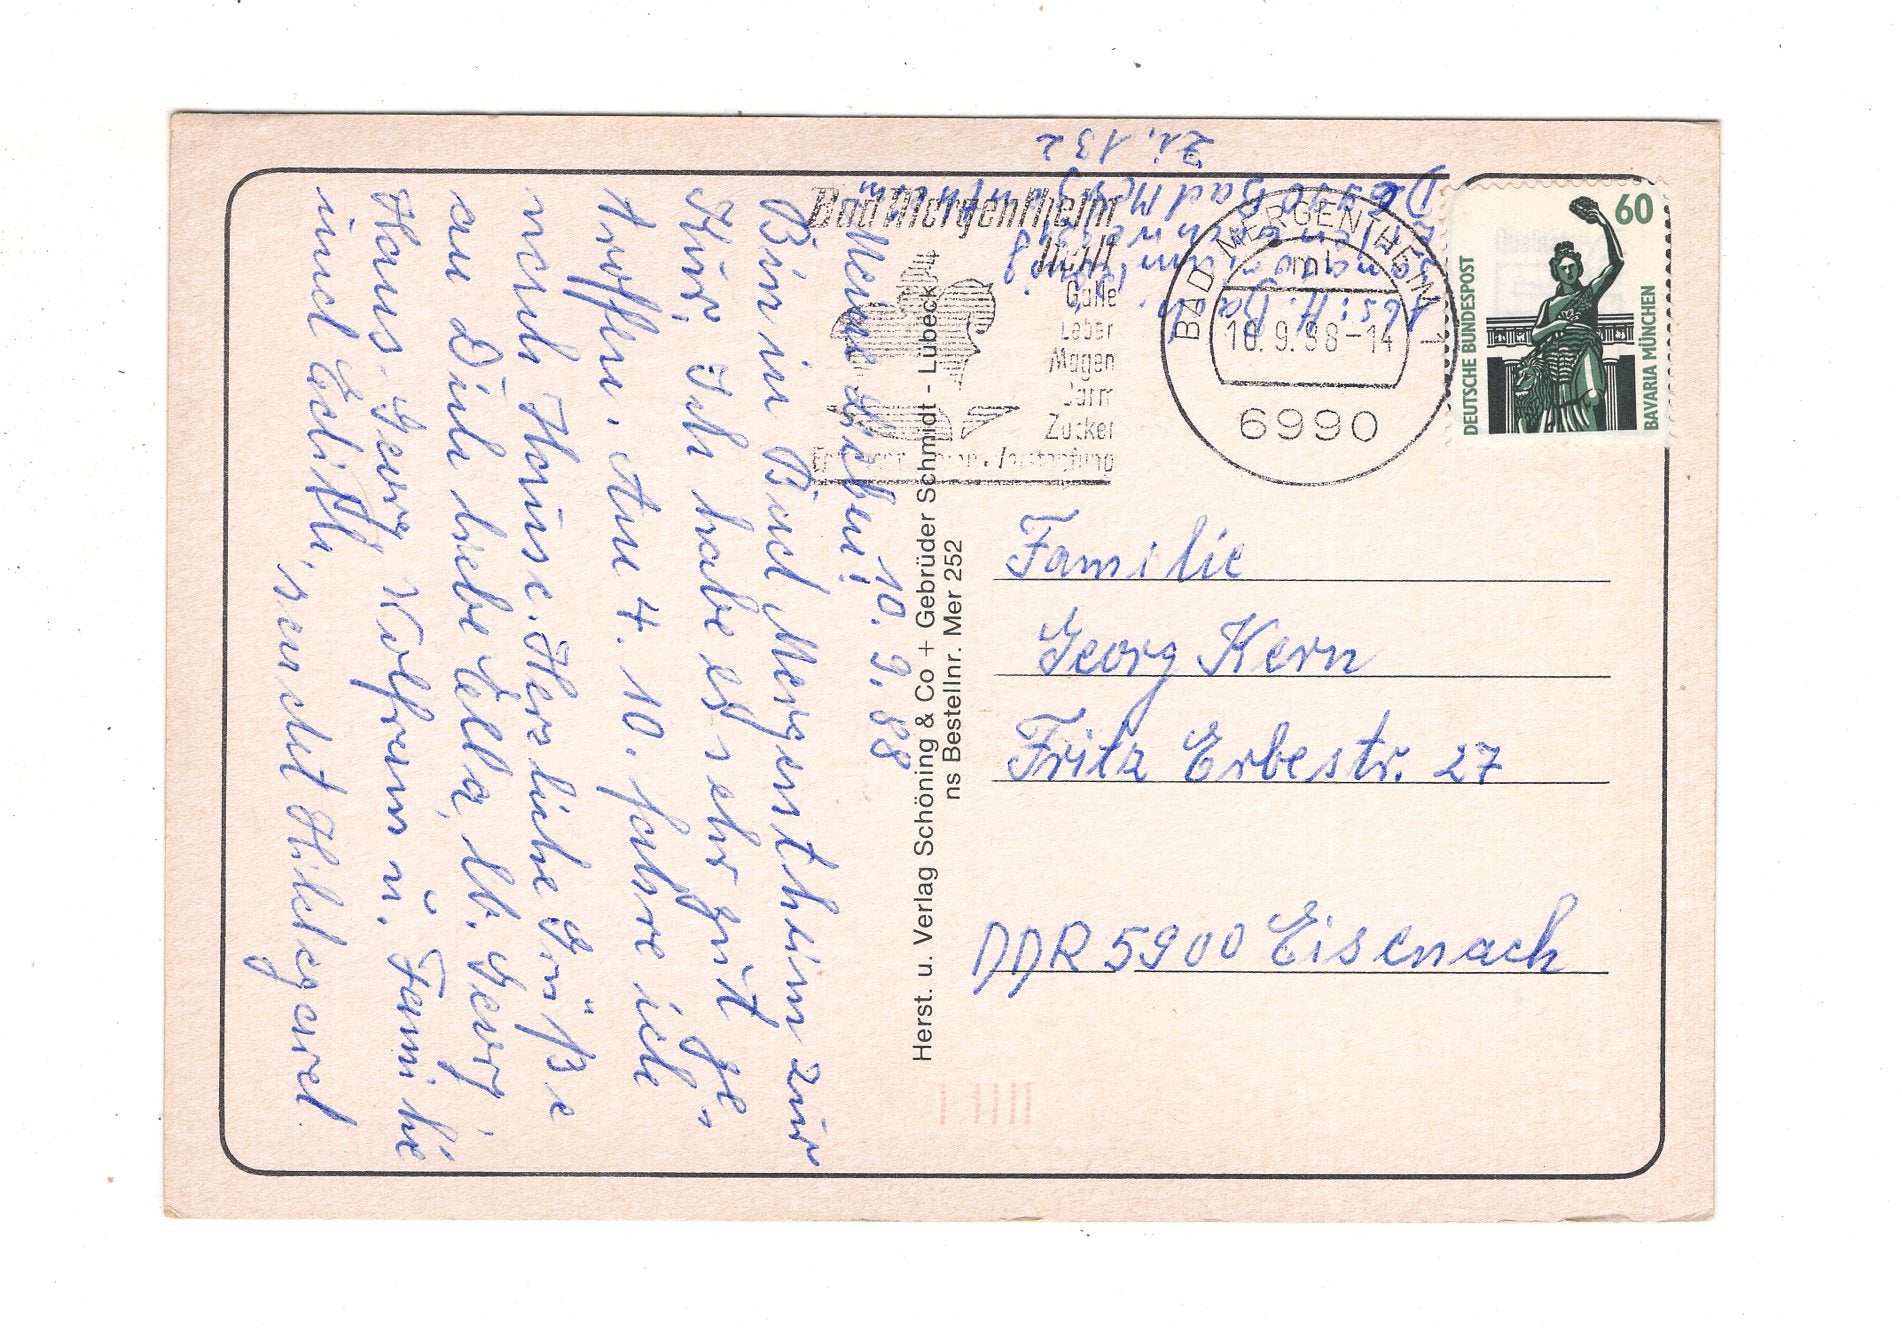 10. 9. 88
Meine Lieben!
Bin in Bad Mergentheim zur
Kur. Ich habe es sehr gut ge-
troffen. Am 4. 10. fahre ich
nach Hause. Herzliche Grüße
an Dich liebe Ella, lb. Georg,
Hans-Georg, Wolfram u. Familie
und Edith, sendet Hildegard.
Herst. u. Verlag Schöning & Co + Gebrüder Schmidt - Lübeck
ns Bestellnr. Mer 252
Zi. 132
D 6990 Bad Mergentheim
Abs: H. Ba
Bad Mergentheim
heilt
Galle
Leber
Magen
Darm
Zucker
Verstopfung
BAD MERGENTHEIM 1
ml
10.9.88-14
6990
60
DEUTSCHE BUNDESPOST
BAVARIA MÜNCHEN
Familie
Georg Kern
Fritz Erbestr. 27
DDR 5900 Eisenach